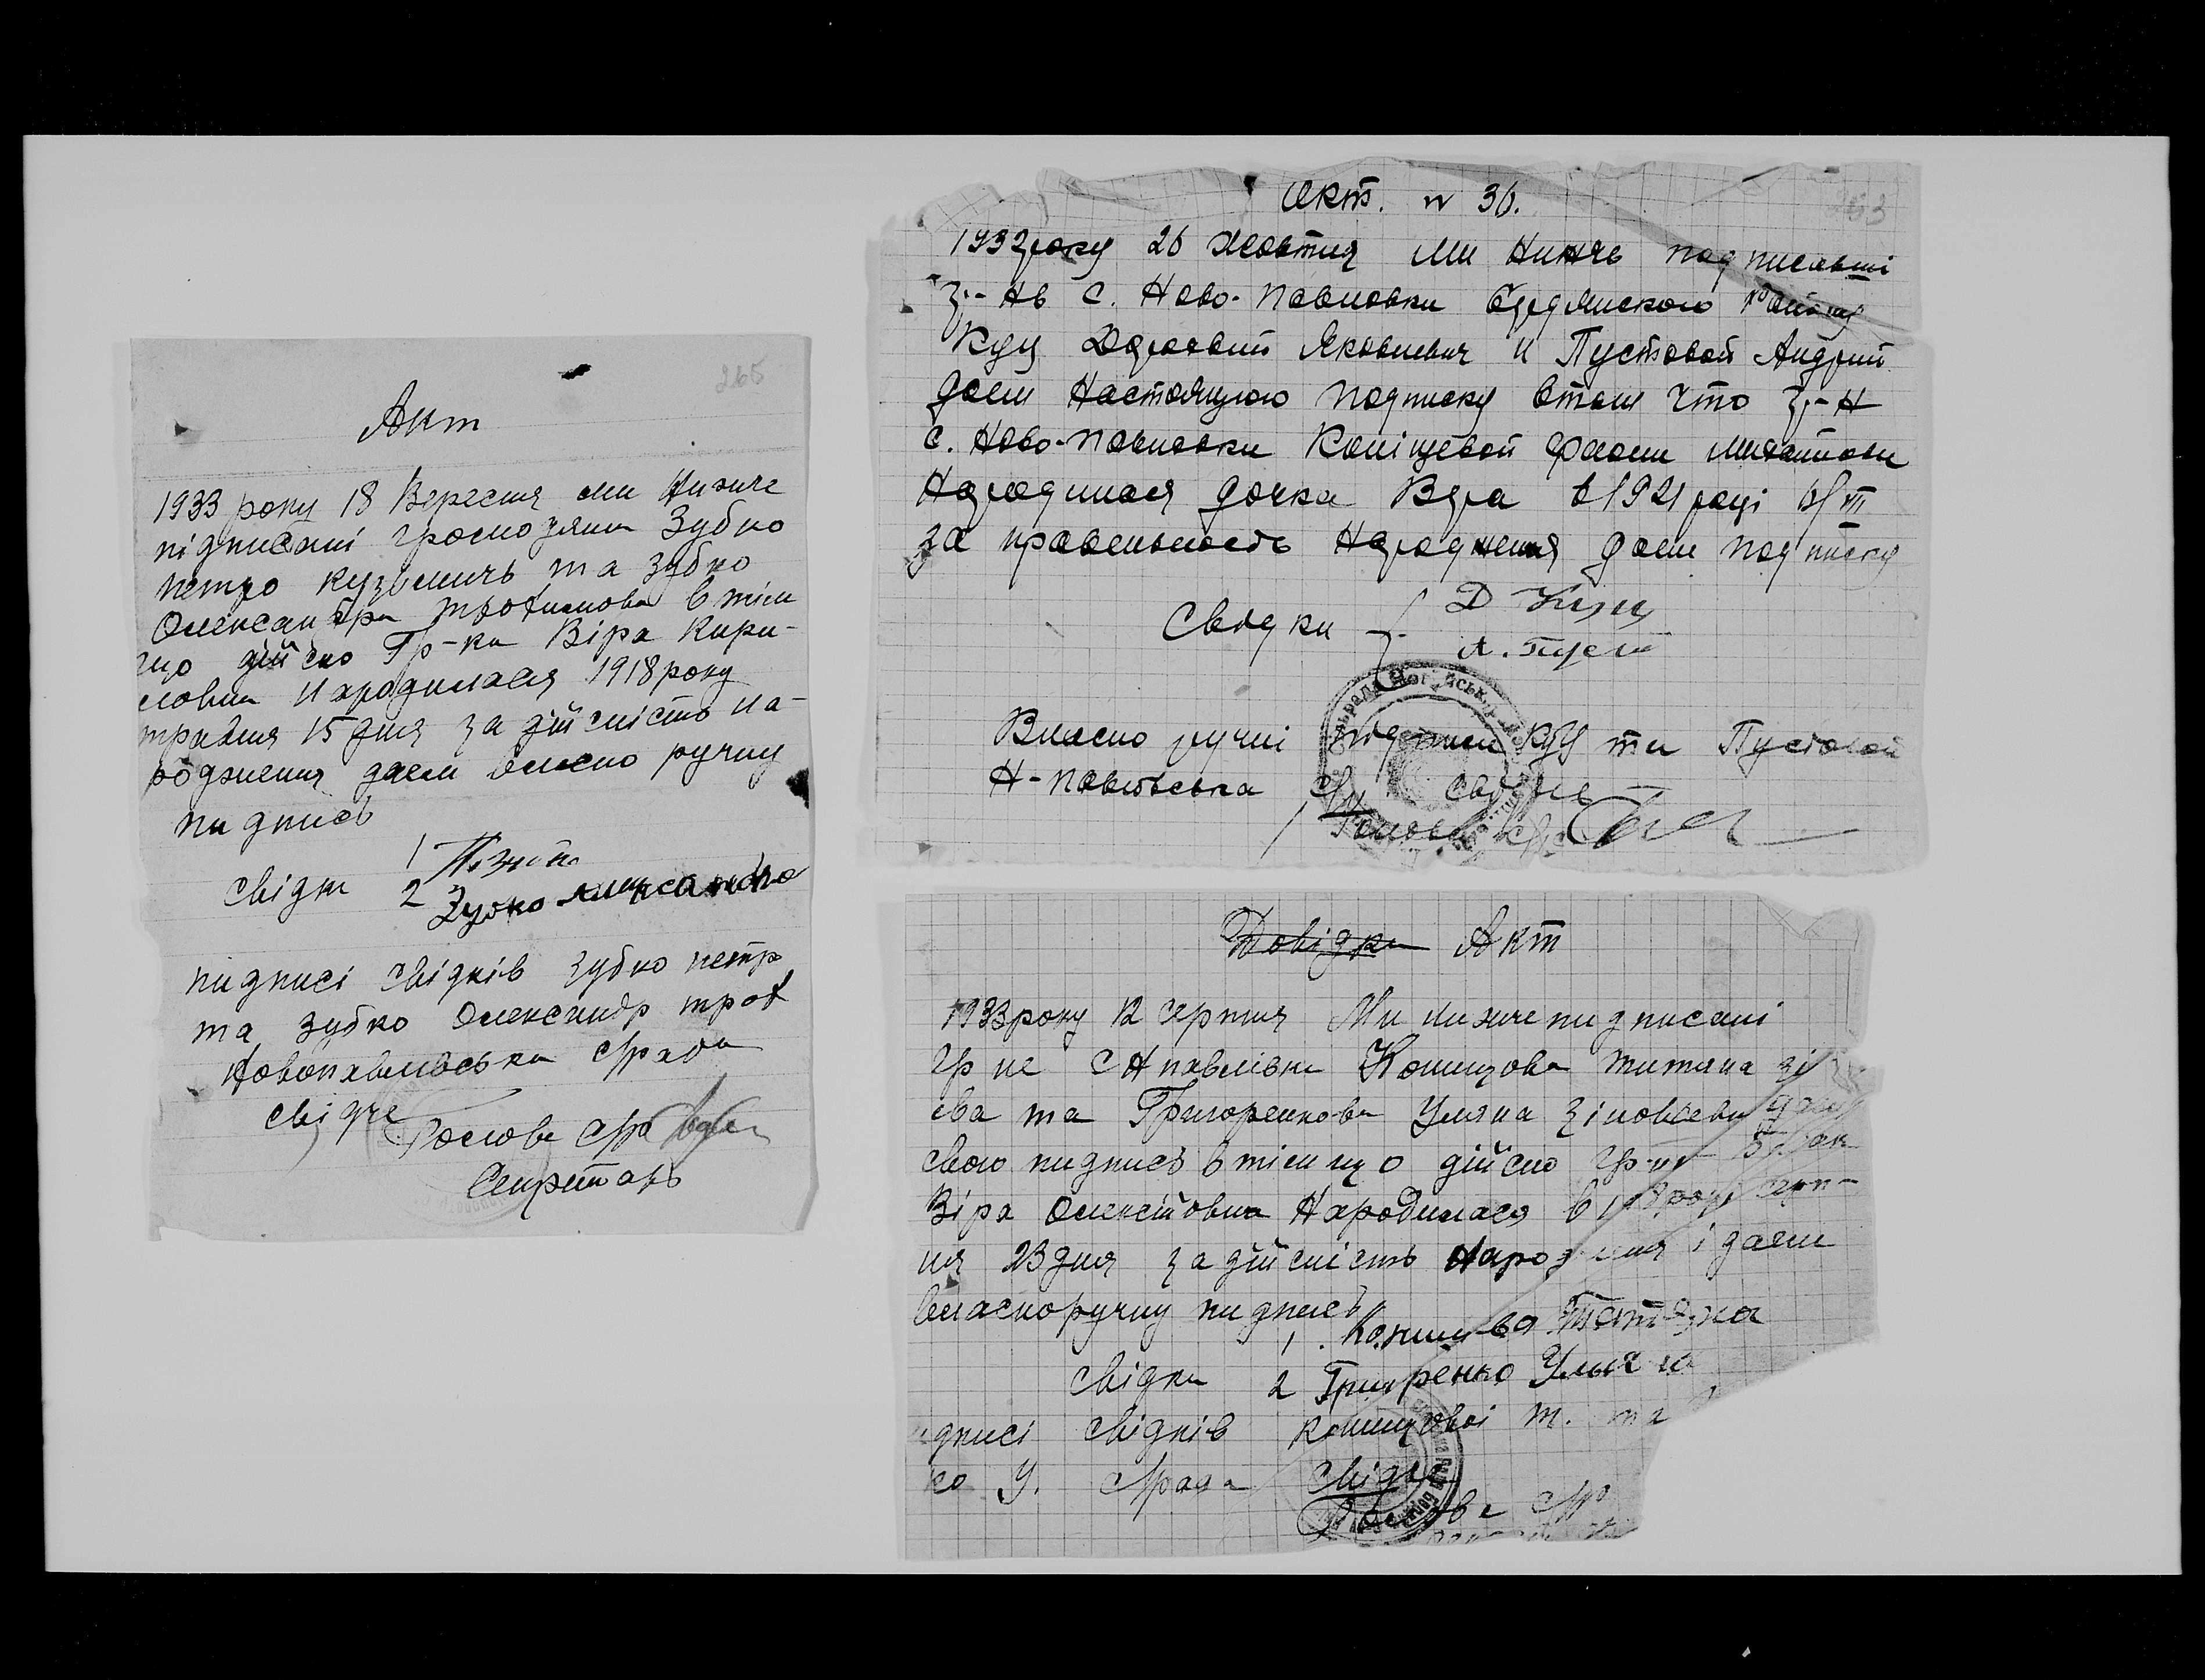 265
Акт
1933 року 18 Вересня ми Нижче
підписані громодяни Зубко
петро кузьмичь та Зубко
Олександра трохимовна в тім
що дійсно Гр-ка Віра Кири-
ловна Народилася 1918 року
травня 15 дня за дійсність на-
родження даем власно ручну
пидпись
свідки 1
2 Зубко Александра
пидписі свідків Зубко петр
та Зубко Олександр трох
Новопавлівська с/рада
свідче
Голова с/р
Секретарь
263
Акт. № 36.
1932 року 26 жовтня Ми Нижчь подписавші
гр-нь с. Ново-Павловки Бердянского Району
Куц Яковлевич и Пустовой Андрий
даем Настоящую подписку втом что гр-н
с. Ново-Павловки Михайловни
Народилася дочка Вера в 1921 році
за правельность Народження даем подписку
Свідки Д Куц
А. Пуст
Власно ручні підписи Куц та Пустовой
Н-Павловська с/р свідче
Голова с/р
Довідка Акт
1933 року 12 серпня Ми нижче пидписані
гр не с Н павлівки Конищова Титяна
ева та Григоренкова Уляна Зіновьевна даем
свою пидпись в тім що дійсно гр-ка
Віра Олексіївна Народилася в році серп-
ня 23 дня за дійсність народження і даем
власноручну пидпись
1. Конищева Татяна
свідки 2 Григоренко Улья
дписі свідків Конищовоі т. та
ко У. с/рада свідче
Голова с/р